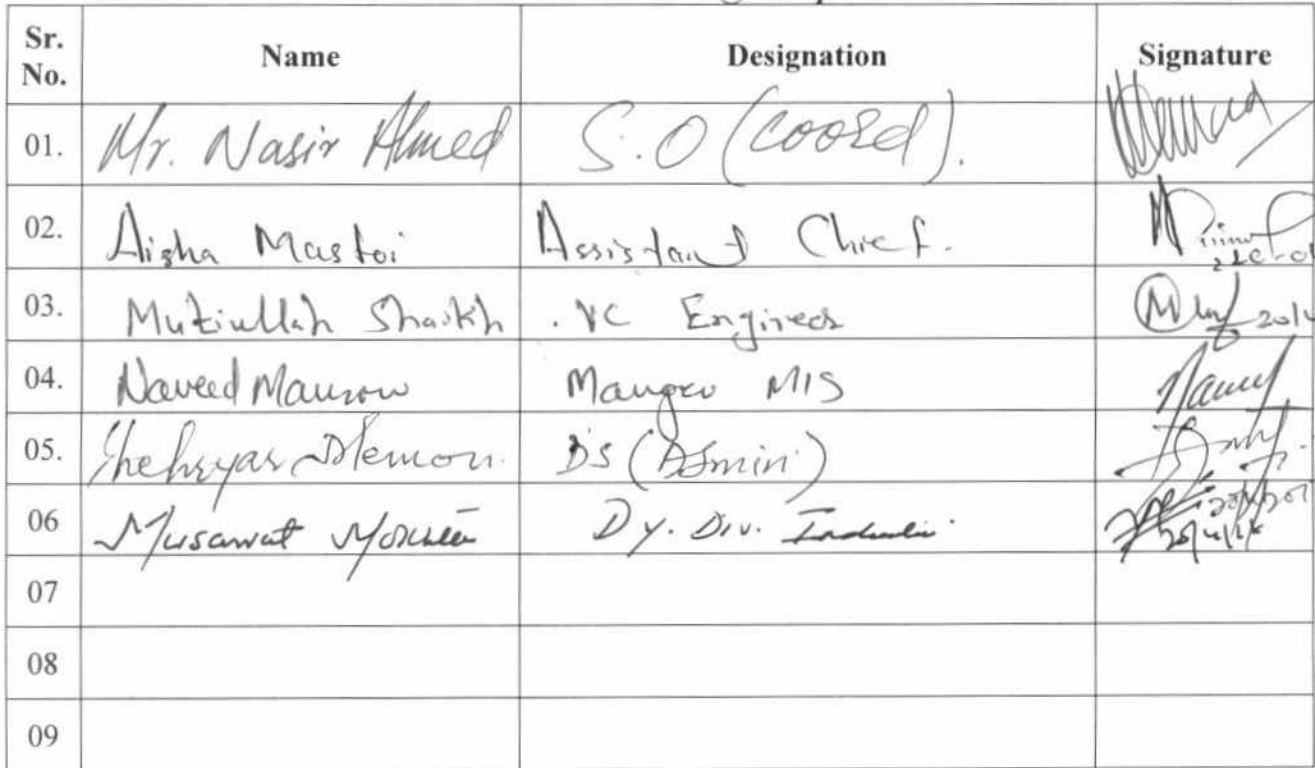 Sr. No. Name Designation Signature
01. Mr. Nasir Ahmed S.O (Coord).
02. Aisha Mastoi Assistant Chief.
03. Mutiullah Shaikh . VC Engineer
04. Naveed MIS
05. Shehryar Memon. DS (Admin)
06 Musawat Dy. Div.
07
08
09